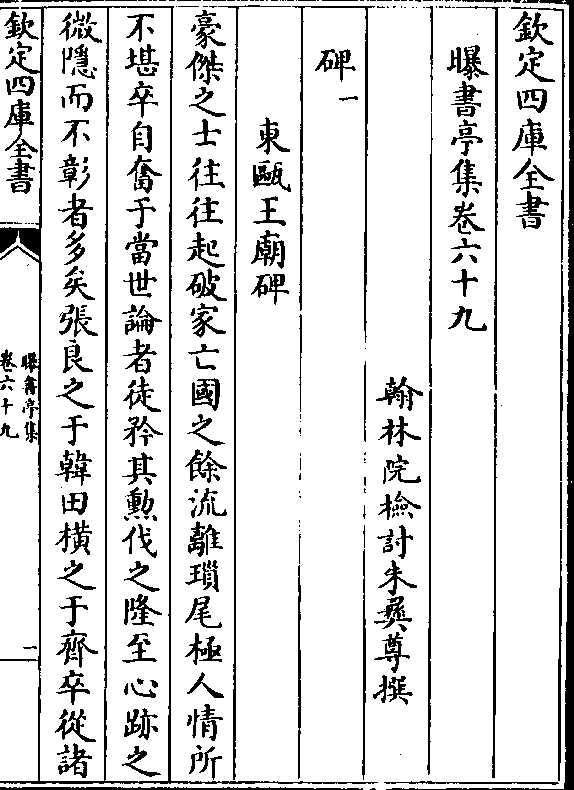 欽定四庫全書
曝書亭集卷六十九
翰林院檢討朱彝尊撰
碑一
東甌王廟碑
豪傑之士往往起破家亡國之餘流離瑣尾極人情所
不堪卒自奮于當世論者徒矜其勲伐之隆至心跡之
微隱而不彰者多矣張良之于韓田橫之于齊卒從諸
欽定四庫全書
曝書亭集
卷六十九
一